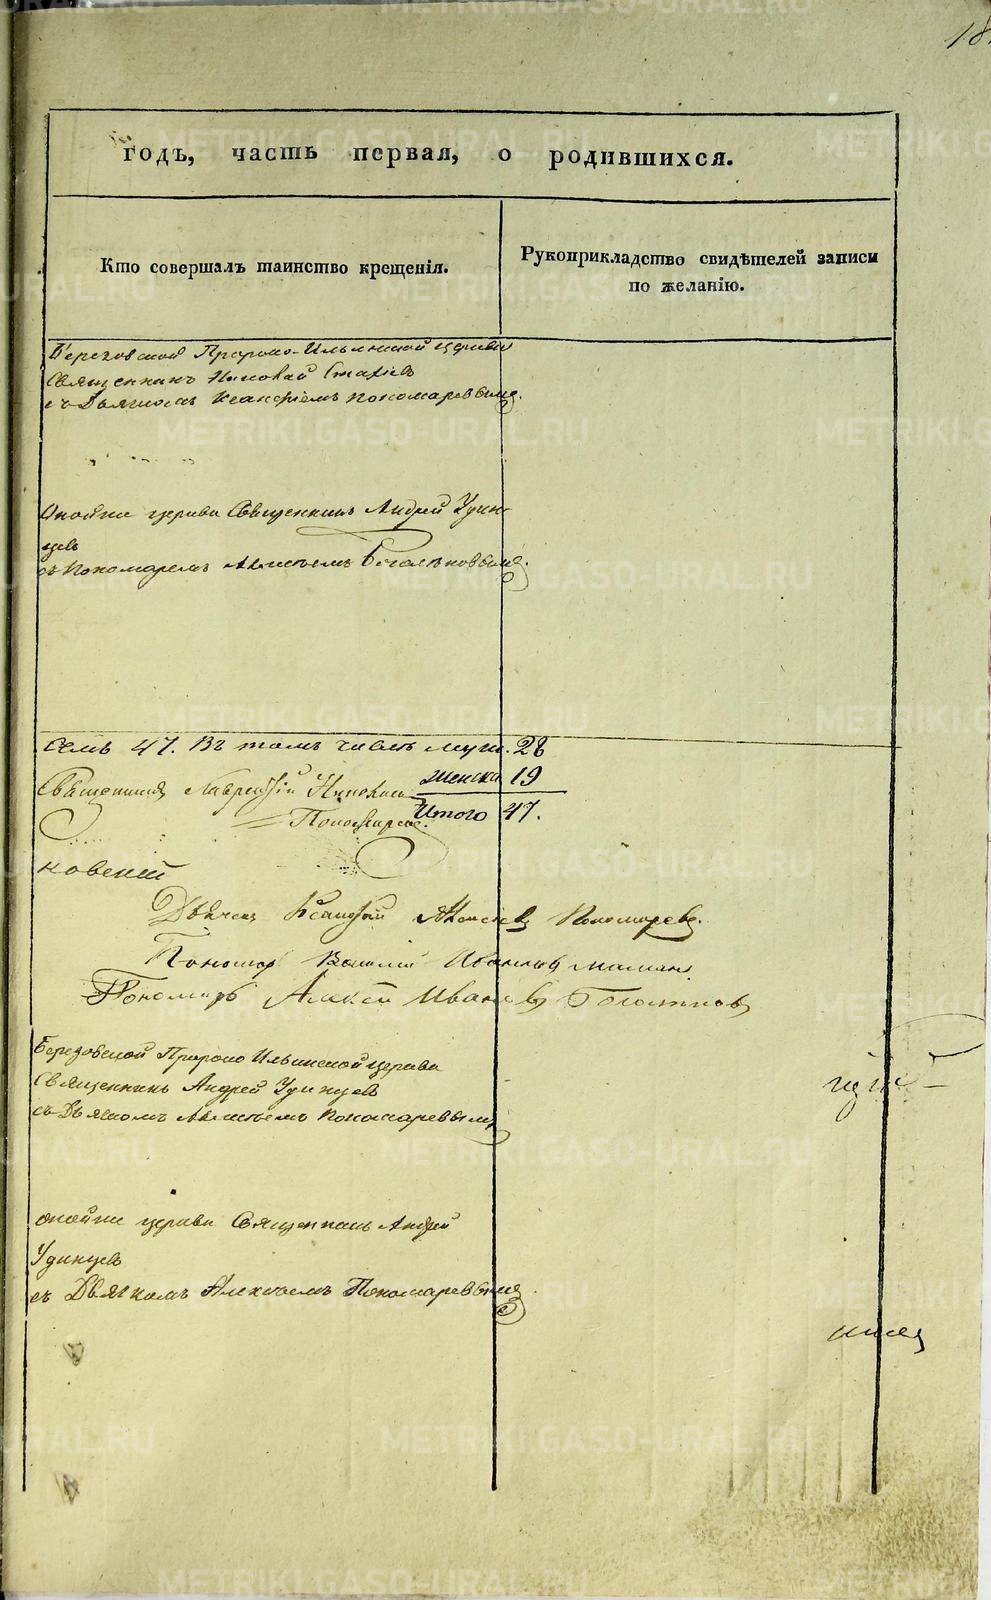 18
годъ, часть первая, о родившихся.
Кто совершалъ таинство крещенія.
Рукоприкладство свидѣтелей записи
по желанію.
Березовской Пророко-Ильинской церкви
Священникъ Николай
съ Дьячкомъ Ксанфіемъ Пономаревымъ.
Онойже церкви Священникъ Андрей Удин-
цевъ
съ Пономаремъ Алексѣемъ Богомоловымъ
семь 47. Въ томъ числѣ муж. 28
женска 19
Священникъ Лаврентій
Итого 47.
Пономаревъ
Дьячекъ Ксанфій Алексѣевъ Пономаревъ.
Пономарь Василій Ивановъ
Пономарь Алексѣй Ивановъ
Березовской Пророко Ильинской церкви
Священникъ Андрей Удинцевъ
съ Дьячкомъ Алексѣемъ Пономаревымъ
онойже церкви Священникъ Андрей
Удинцевъ
съ Дьячкомъ Алексѣемъ Пономаревымъ
METRIKI.GASO-URAL.RU